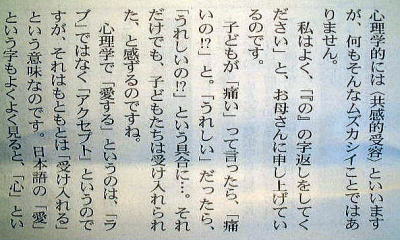 心理学的には〈共感的受容〉といいます
が、何もそんなムズカシイことではあ
りません。
私はよく、「『の』の字返しをしてく
ださい」と、お母さんに申し上げてい
るのです。
子どもが「痛い」って言ったら、「痛
いの!?」と。「うれしい」だったら、
「うれしいの!?」という具合に…。それ
だけでも、子どもたちは受け入れられ
た、と感ずるのですね。
心理学で「愛する」というのは、「ラ
ブ」ではなく「アクセプト」というので
すが、それはもともとは「受け入れる」
という意味なのです。日本語の「愛」
という字もよくよく見ると、「心」とい